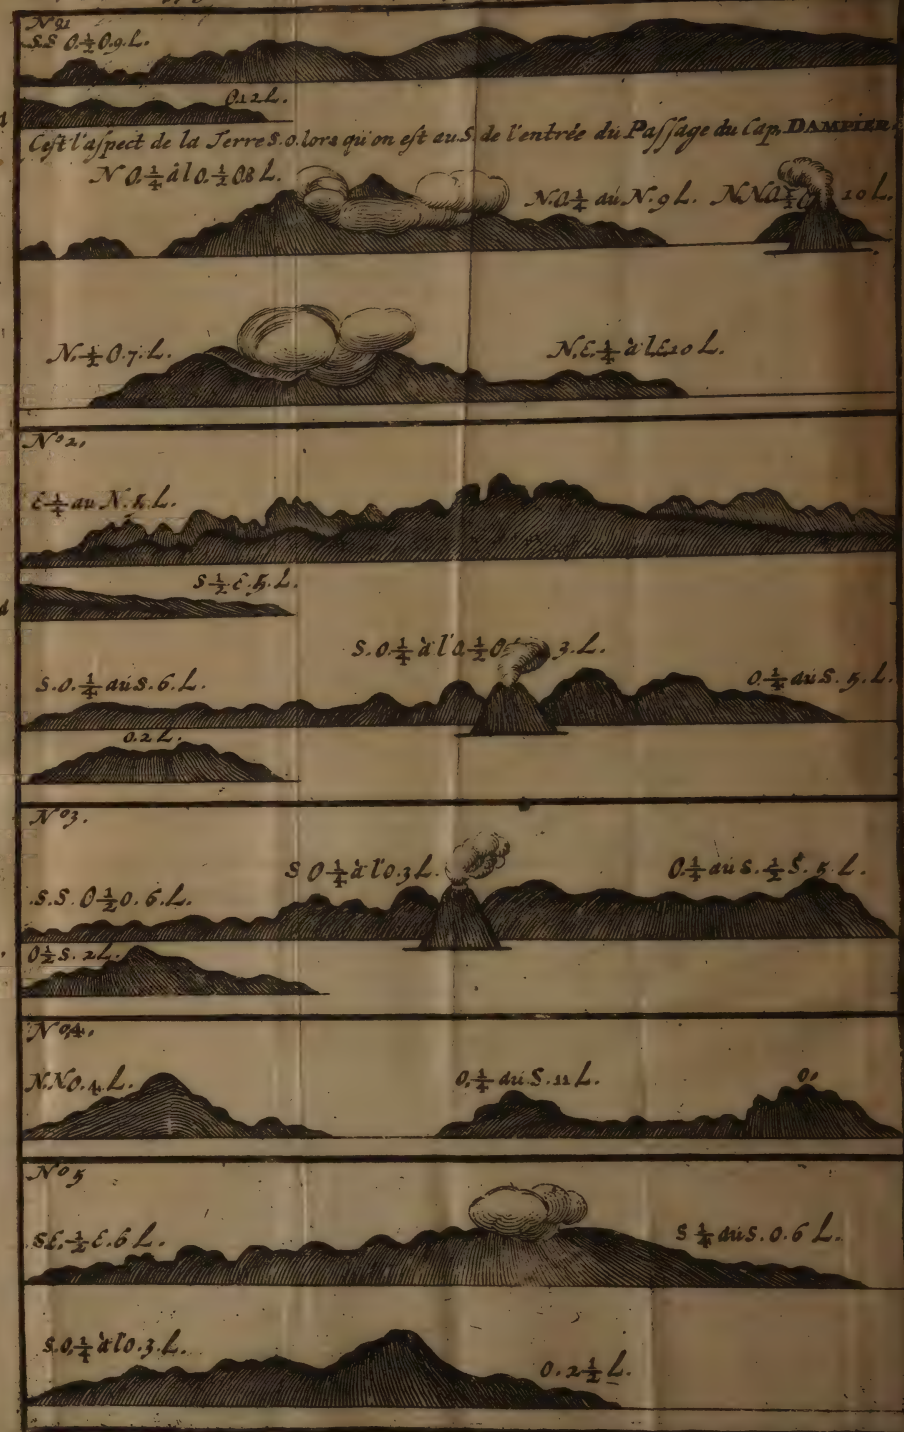 Nº1
S.S O.½O.9.L.
O.12L.
C'eſt l'aſpect de la Terre S.O. lors qu'on eſt au S. de l'entrée du Paſſage du Cap. DAMPIER.
N O.¼ à l O.½ O8 L.
N.O.¼ au N.9 L. N.N.O½ 10 L.
N.½ O.7.L.
N.E.¼ à l.E10 L.
Nº2.
E ¼ au N. L.
S ½ E.5.L.
S.O.¼ à l'O.½ O 3.L.
S.O.¼ au S.6.L.
O.¼ au S.5.L.
O.2 L.
Nº3.
S O ¼ à l'O.3 L.
O.¼ au S.½ S.5.L.
.S.S.O½O.6.L.
O½S.2L.
Nº4.
N.N O.4.L.
O.¼ au S.11 L.
O.
Nº5
SE.½ E.6 L.
S ¼ au S.O.6 L.
S.O.¼ à l O.3.L.
O.2½ L.